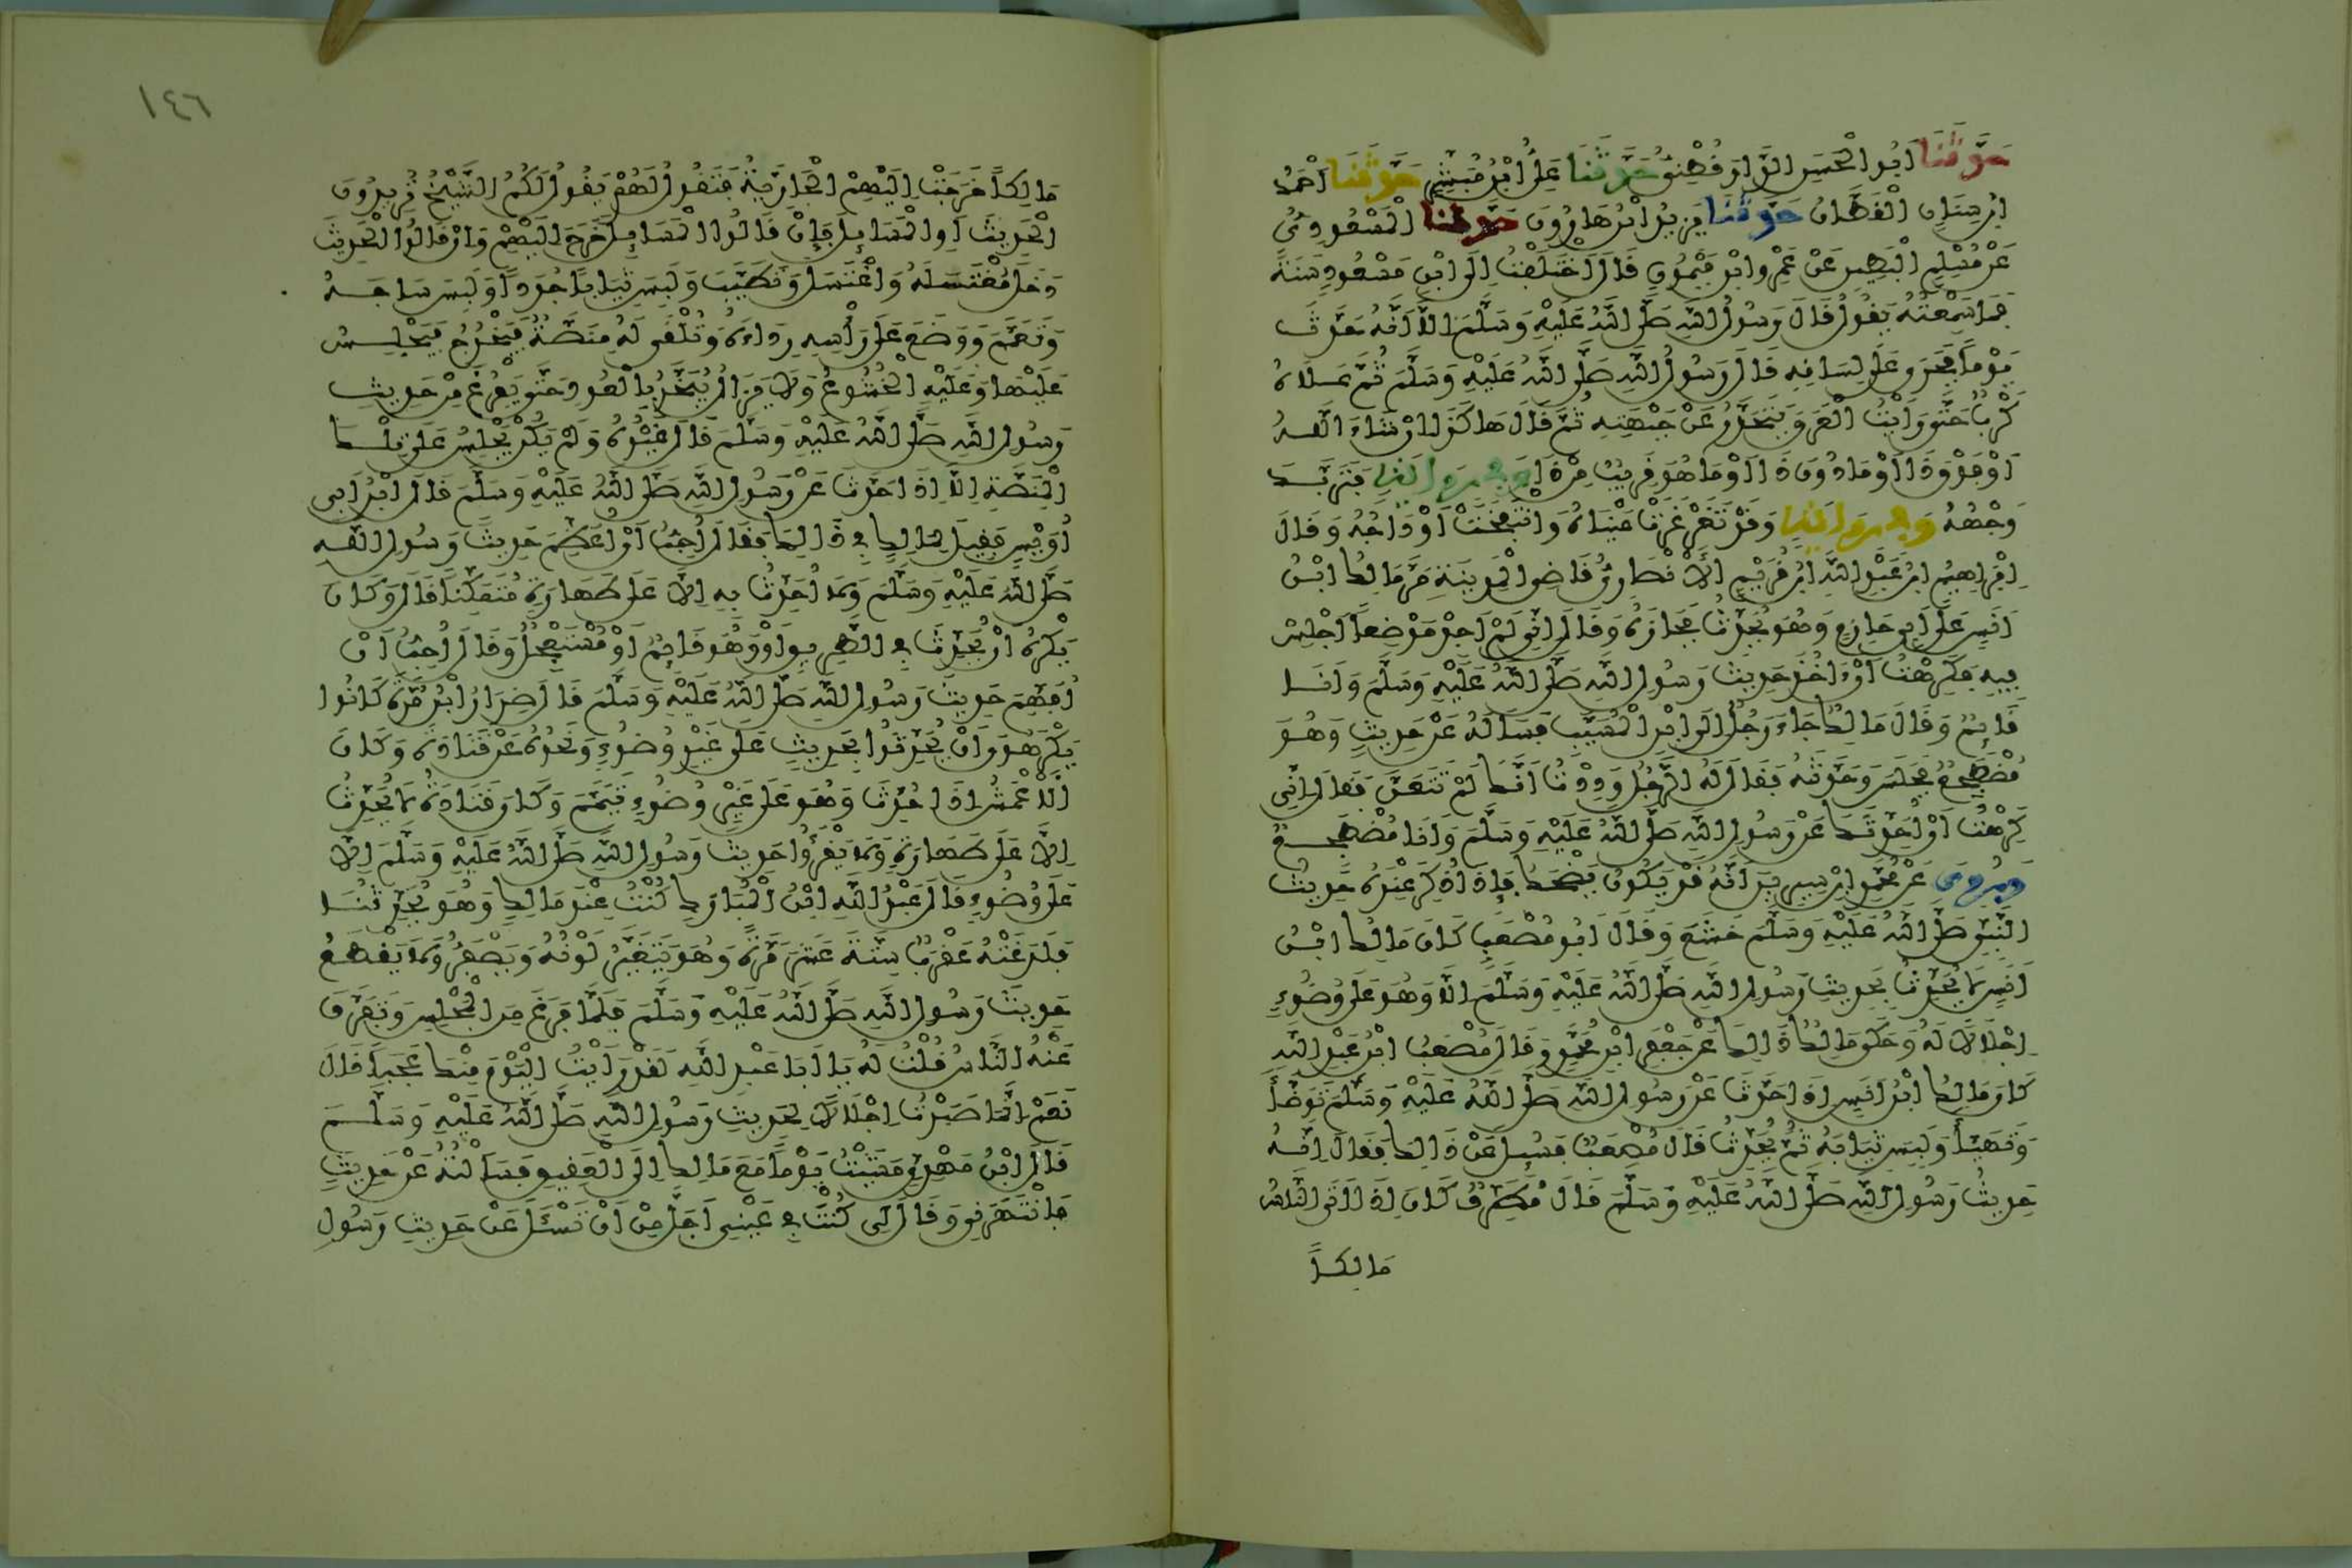 حَدَّثَنَا اَبُو الْحَسَنِ الدَّارَقُطْنِيُّ حَدَّثَنَا عَلِيُّ ابْنُ مُبَشِّرٍ حَدَّثَنَا اَحْمَدُ
ابْنُ سِنَانٍ الْقَطَّانُ حَدَّثَنَا يَزِيدُ ابْنُ هَارُونَ حَدَّثَنَا الْمَسْعُودِيُّ
عَنْ مُسْلِمٍ الْبَطِينِ عَنْ عَمْرِو ابْنِ مَيْمُونٍ قَالَ اخْتَلَفْتُ اِلَى ابْنِ مَسْعُودٍ سَنَةً
فَمَا سَمِعْتُهُ يَقُولُ قَالَ رَسُولُ اللَّهِ صَلَّى اللَّهُ عَلَيْهِ وَسَلَّمَ اِلَّا اَنَّهُ حَدَّثَ
يَوْمًا فَجَرَى عَلَى لِسَانِهِ قَالَ رَسُولُ اللَّهِ صَلَّى اللَّهُ عَلَيْهِ وَسَلَّمَ ثُمَّ عَلَاهُ
كَرْبٌ حَتَّى رَاَيْتُ الْعَرَقَ يَتَحَدَّرُ عَنْ جَبْهَتِهِ ثُمَّ قَالَ هَاكَذَا اِنْ شَاءَ اللَّهُ
اَوْ فَوْقَ ذَا اَوْ مَا دُونَ ذَا اَوْ مَا هُوَ قَرِيبٌ مِنْ ذَا وَفِي رِوَايَةٍ فَتَرَبَّدَ
وَجْهُهُ وَفِي رِوَايَةٍ وَقَدْ تَغَرْغَرَتْ عَيْنَاهُ وَانْتَفَخَتْ اَوْدَاجُهُ وَقَالَ
اِبْرَاهِيمُ ابْنُ عَبْدِ اللَّهِ ابْنِ قُرَيْمٍ الْاَنْصَارِيُّ قَاضِي الْمَدِينَةِ مَرَّ مَالِكُ ابْنُ
اَنَسٍ عَلَى اَبِي حَازِمٍ وَهُوَ يُحَدِّثُ فَجَازَهُ وَقَالَ اِنِّي لَمْ اَجِدْ مَوْضِعًا اَجْلِسُ
فِيهِ فَكَرِهْتُ اَنْ ءَاخُذَ حَدِيثَ رَسُولِ اللَّهِ صَلَّى اللَّهُ عَلَيْهِ وَسَلَّمَ وَاَنَا
قَائِمٌ وَقَالَ مَالِكٌ جَاءَ رَجُلٌ اِلَى ابْنِ الْمُسَيَّبِ فَسَاَلَهُ عَنْ حَدِيثٍ وَهُوَ
مُضْطَجِعٌ فَجَلَسَ وَحَدَّثَهُ فَقَالَ لَهُ الرَّجُلُ وَدِدْتُ اَنَّكَ لَمْ تَتَعَنَّ فَقَالَ اِنِّي
كَرِهْتُ اَنْ اُحَدِّثَكَ عَنْ رَسُولِ اللَّهِ صَلَّى اللَّهُ عَلَيْهِ وَسَلَّمَ وَاَنَا مُضْطَجِعٌ
وَرُوِيَ عَنْ مُحَمَّدِ ابْنِ سِيرِينَ اَنَّهُ قَدْ يَكُونُ يَضْحَكُ فَاِذَا ذُكِرَ عِنْدَهُ حَدِيثُ
النَّبِيِّ صَلَّى اللَّهُ عَلَيْهِ وَسَلَّمَ خَشَعَ وَقَالَ اَبُو مُصْعَبٍ كَانَ مَالِكُ ابْنُ
اَنَسٍ لَا يُحَدِّثُ بِحَدِيثِ رَسُولِ اللَّهِ صَلَّى اللَّهُ عَلَيْهِ وَسَلَّمَ اِلَّا وَهُوَ عَلَى وُضُوءٍ
اِجْلَالًا لَهُ وَحَكَى مَالِكٌ ذَالِكَ عَنْ جَعْفَرِ ابْنِ مُحَمَّدٍ وَقَالَ مُصْعَبُ ابْنُ عَبْدِ اللَّهِ
كَانَ مَالِكُ ابْنُ اَنَسٍ اِذَا حَدَّثَ عَنْ رَسُولِ اللَّهِ صَلَّى اللَّهُ عَلَيْهِ وَسَلَّمَ تَوَضَّأَ
وَتَهَيَّأَ وَلَبِسَ ثِيَابَهُ ثُمَّ يُحَدِّثُ قَالَ مُصْعَبٌ فَسُئِلَ عَنْ ذَالِكَ فَقَالَ اِنَّهُ
حَدِيثُ رَسُولِ اللَّهِ صَلَّى اللَّهُ عَلَيْهِ وَسَلَّمَ قَالَ مُطَرِّفٌ كَانَ اِذَا اَتَى النَّاسُ
مَالِكًا
١٤٦
مَالِكًا خَرَجَتْ اِلَيْهِمُ الْجَارِيَةُ فَتَقُولُ لَهُمْ يَقُولُ لَكُمُ الشَّيْخُ تُرِيدُونَ
الْحَدِيثَ اَوِ الْمَسَائِلَ فَاِنْ قَالُوا الْمَسَائِلَ خَرَجَ اِلَيْهِمْ وَاِنْ قَالُوا الْحَدِيثَ
دَخَلَ مُغْتَسَلَهُ وَاغْتَسَلَ وَتَطَيَّبَ وَلَبِسَ ثِيَابًا جُدُدًا وَلَبِسَ سَاجَهُ
وَتَعَمَّمَ وَوَضَعَ عَلَى رَأْسِهِ رِدَاءَهُ وَتُلْقَى لَهُ مِنَصَّةٌ فَيَخْرُجُ فَيَجْلِسُ
عَلَيْهَا وَعَلَيْهِ الْخُشُوعُ وَلَا يَزَالُ يُبَخَّرُ بِالْعُودِ حَتَّى يَفْرُغَ مِنْ حَدِيثِ
رَسُولِ اللَّهِ صَلَّى اللَّهُ عَلَيْهِ وَسَلَّمَ قَالَ غَيْرُهُ وَلَمْ يَكُنْ يَجْلِسُ عَلَى تِلْكَ
الْمِنَصَّةِ اِلَّا اِذَا حَدَّثَ عَنْ رَسُولِ اللَّهِ صَلَّى اللَّهُ عَلَيْهِ وَسَلَّمَ قَالَ ابْنُ اَبِي
اُوَيْسٍ فَقِيلَ لِمَالِكٍ فِي ذَالِكَ فَقَالَ اُحِبُّ اَنْ اُعَظِّمَ حَدِيثَ رَسُولِ اللَّهِ
صَلَّى اللَّهُ عَلَيْهِ وَسَلَّمَ وَلَا اُحَدِّثُ بِهِ اِلَّا عَلَى طَهَارَةٍ مُتَمَكِّنًا قَالَ وَكَانَ
يَكْرَهُ اَنْ يُحَدِّثَ فِي الطَّرِيقِ اَوْ وَهُوَ قَائِمٌ اَوْ مُسْتَعْجِلٌ وَقَالَ اُحِبُّ اَنْ
اُفَهِّمَ حَدِيثَ رَسُولِ اللَّهِ صَلَّى اللَّهُ عَلَيْهِ وَسَلَّمَ قَالَ ضِرَارُ ابْنُ مُرَّةَ كَانُوا
يَكْرَهُونَ اَنْ يُحَدِّثُوا بِحَدِيثٍ عَلَى غَيْرِ وُضُوءٍ وَنَحْوُهُ عَنْ قَتَادَةَ وَكَانَ
الْاَعْمَشُ اِذَا حَدَّثَ وَهُوَ عَلَى غَيْرِ وُضُوءٍ تَيَمَّمَ وَكَانَ قَتَادَةُ لَا يُحَدِّثُ
اِلَّا عَلَى طَهَارَةٍ وَلَا يَقْرَأُ حَدِيثَ رَسُولِ اللَّهِ صَلَّى اللَّهُ عَلَيْهِ وَسَلَّمَ اِلَّا
عَلَى وُضُوءٍ قَالَ عَبْدُ اللَّهِ ابْنُ الْمُبَارَكِ كُنْتُ عِنْدَ مَالِكٍ وَهُوَ يُحَدِّثُنَا
فَلَدَغَتْهُ عَقْرَبٌ سِتَّةَ عَشَرَ مَرَّةً وَهُوَ يَتَغَيَّرُ لَوْنُهُ وَيَصْفَرُّ وَلَا يَقْطَعُ
حَدِيثَ رَسُولِ اللَّهِ صَلَّى اللَّهُ عَلَيْهِ وَسَلَّمَ فَلَمَّا فَرَغَ مِنَ الْمَجْلِسِ وَتَفَرَّقَ
عَنْهُ النَّاسُ قُلْتُ لَهُ يَا اَبَا عَبْدِ اللَّهِ لَقَدْ رَاَيْتُ الْيَوْمَ مِنْكَ عَجَبًا قَالَ
نَعَمْ اِنَّمَا صَبَرْتُ اِجْلَالًا لِحَدِيثِ رَسُولِ اللَّهِ صَلَّى اللَّهُ عَلَيْهِ وَسَلَّمَ
قَالَ ابْنُ مَهْدِيٍّ مَشَيْتُ يَوْمًا مَعَ مَالِكٍ اِلَى الْعَقِيقِ فَسَاَلْتُهُ عَنْ حَدِيثٍ
فَانْتَهَرَنِي وَقَالَ لِي كُنْتَ فِي عَيْنِي اَجَلَّ مِنْ اَنْ تَسْئَلَ عَنْ حَدِيثِ رَسُولِ